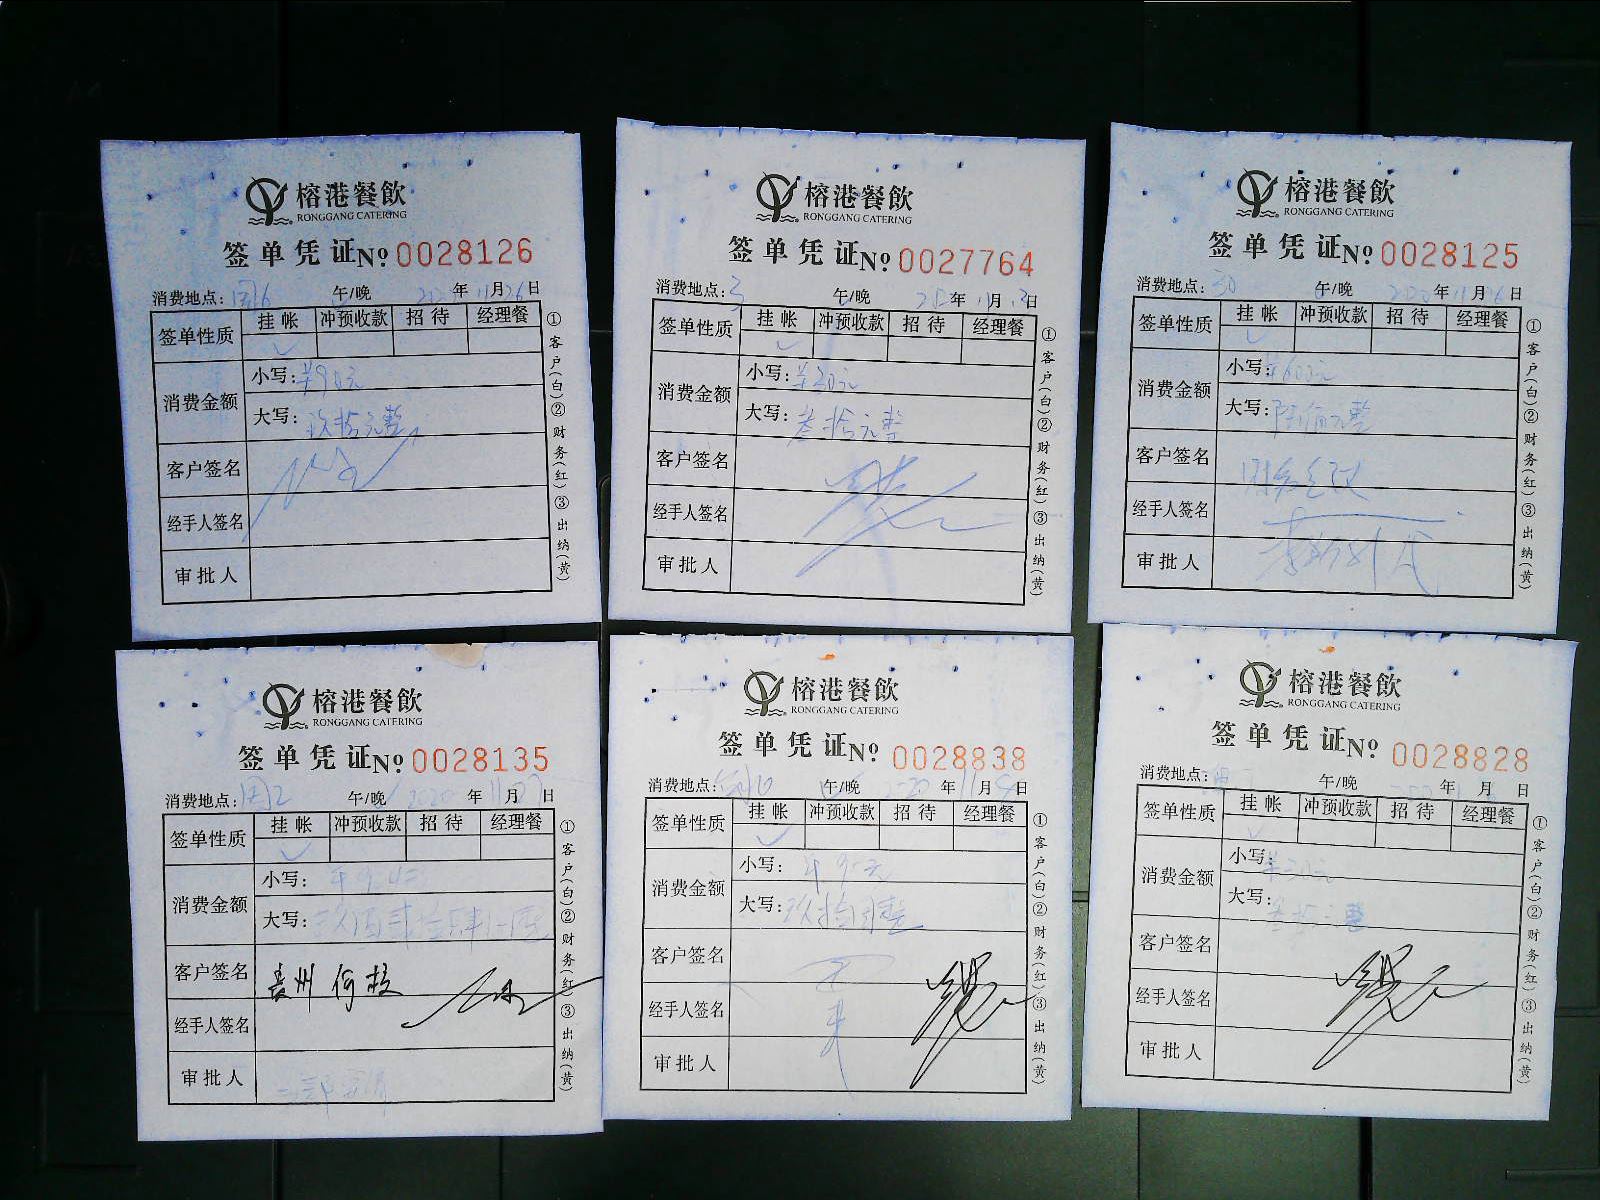 榕港餐飲
RONGGANG CATERING
签单凭证№ 0028126
消费地点: 午/晚 年 11月26日
签单性质 挂帐 冲预收款 招待 经理餐
消费金额
小写:¥90元
大写:玖拾元整
客户签名
经手人签名
审批人
①客户(白)②财务(红)③出纳(黄)
榕港餐飲
RONGGANG CATERING
签单凭证№ 0027764
消费地点: 午/晚 年 11月 日
签单性质 挂帐 冲预收款 招待 经理餐
消费金额
小写:¥30元
大写:叁拾元整
客户签名
经手人签名
审批人
①客户(白)②财务(红)③出纳(黄)
榕港餐飲
RONGGANG CATERING
签单凭证№ 0028125
消费地点: 午/晚 2020年11月26日
签单性质 挂帐 冲预收款 招待 经理餐
消费金额
小写:¥600元
大写:陆佰元整
客户签名
经手人签名
审批人
①客户(白)②财务(红)③出纳(黄)
榕港餐飲
RONGGANG CATERING
签单凭证№ 0028135
消费地点: 午/晚 2020年11月27日
签单性质 挂帐 冲预收款 招待 经理餐
消费金额
小写:
大写:
客户签名
经手人签名
审批人
①客户(白)②财务(红)③出纳(黄)
榕港餐飲
RONGGANG CATERING
签单凭证№ 0028838
消费地点: 午/晚 2020年11月 日
签单性质 挂帐 冲预收款 招待 经理餐
消费金额
小写:¥90元
大写:玖拾 整
客户签名
经手人签名
审批人
①客户(白)②财务(红)③出纳(黄)
榕港餐飲
RONGGANG CATERING
签单凭证№ 0028828
消费地点: 午/晚 年 月 日
签单性质 挂帐 冲预收款 招待 经理餐
消费金额
小写:
大写:
客户签名
经手人签名
审批人
①客户(白)②财务(红)③出纳(黄)